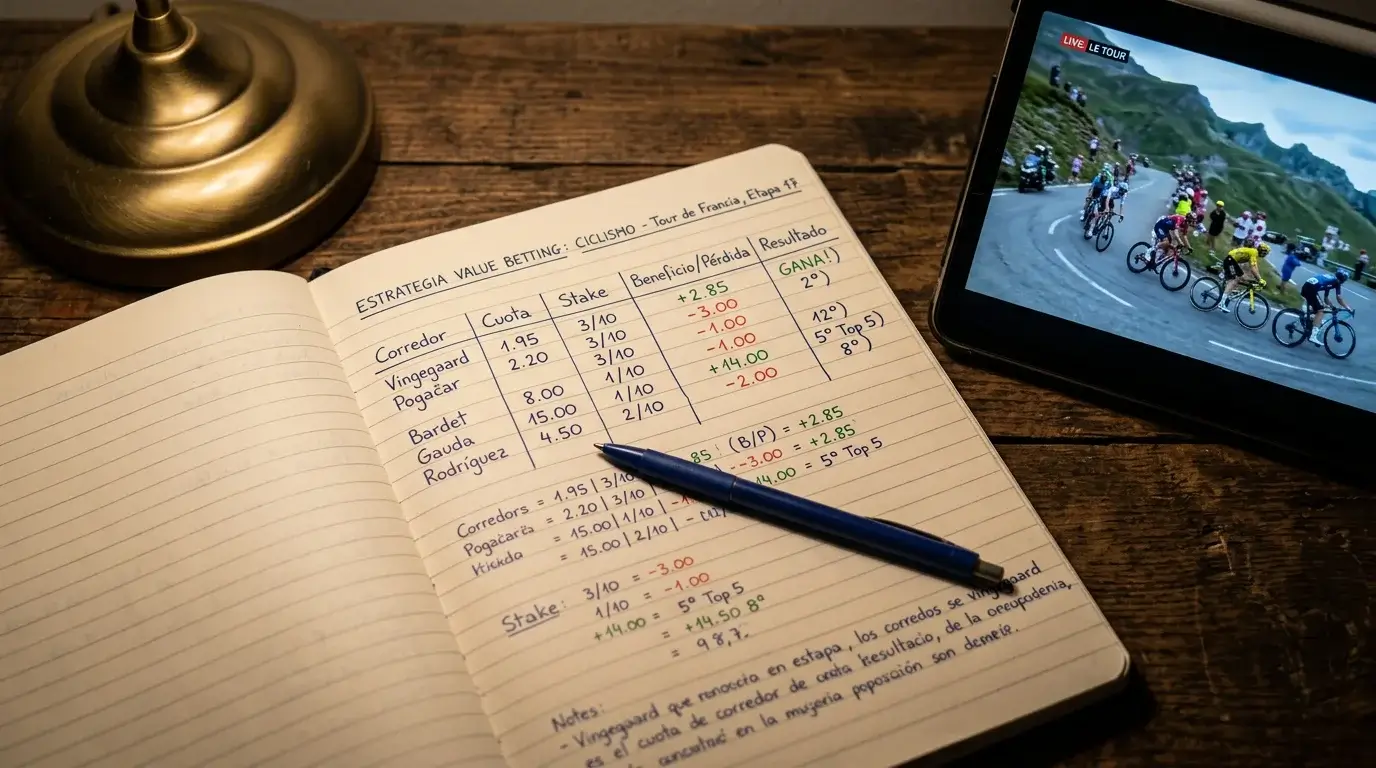 LIVE LE TOUR
ESTRATEGIA VALUE BETTING: CICLISMO - Tour de Francia, Etapa 17
Corredor Cuota Stake Beneficio/Pérdida Resultado
Vingegaard 1.95 3/10 +2.85 GANA!)
Pogačar 2.20 3/10 -3.00 2º)
3/10 -1.00
Bardet 8.00 1/10 -1.00 12º)
Gauda 15.00 1/10 +14.00 5º Top 5)
Rodríguez 4.50 2/10 -2.00 8º)
Corredors = 1.95 | 3/10 85 (B/P) = +2.85
= 2.20 | 3/10 | --3.00 = +2.85
= 15.00 | 1/10 | 14.00 = 5º Top 5
= 15.00 | 2/10 | -
Stake: 3/10 = -3.00
1/10 = -1.00
+14.00 = 5º Top 5
= +14.50 8º
= 98,7.
Notes:
- Vingegaard que en estapa, los corredos se vingegaard
es el cuota de corredor de de la
en la mujeria poposación son